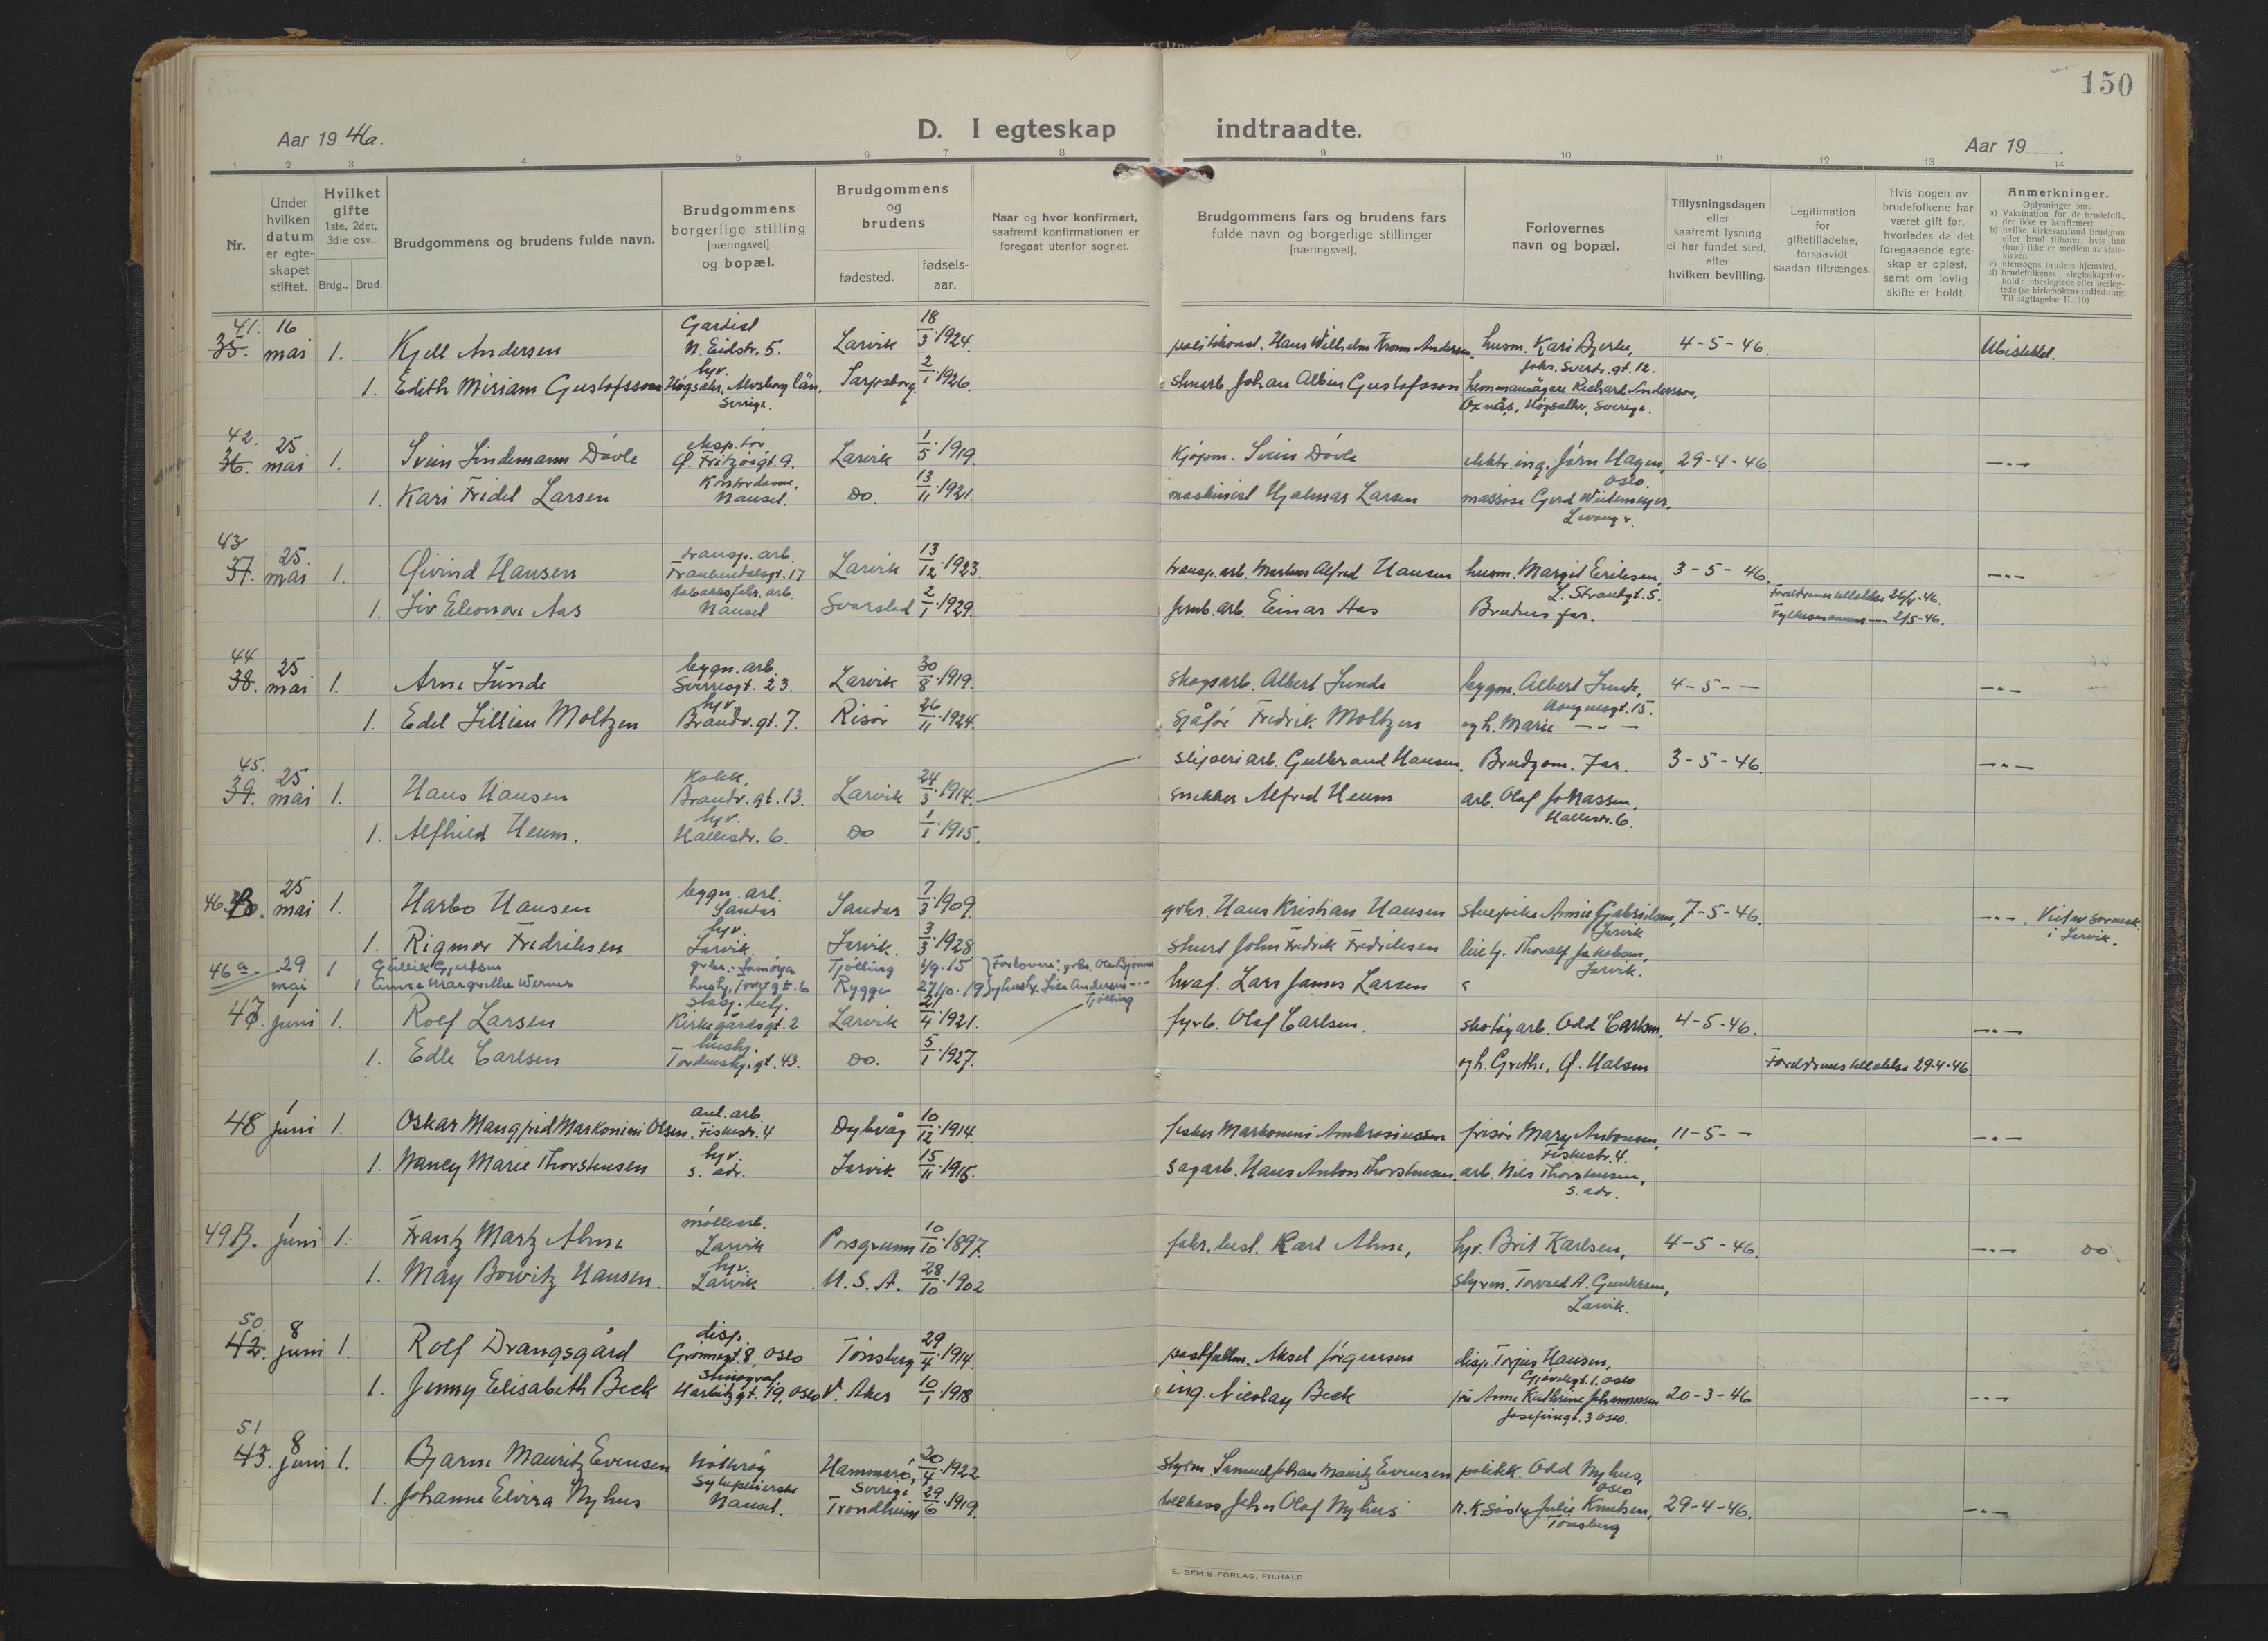 150
Aar 19 46a.
D. I egteskap indtraadte.
Aar 19 .
1 2 3 4 5 6 7 8 9 10 11 12 13 14
Nr.
Under hvilken datum er egte-skapet stiftet.
Hvilket gifte 1ste, 2det, 3die osv..
Brdg.. Brud.
Brudgommens og brudens fulde navn.
Brudgommens borgerlige stilling [næringsvei] og bopæl.
Brudgommens og brudens
fødested.
fødsels-aar.
Naar og hvor konfirmert, saafremt konfirmationen er foregaat utenfor sognet.
Brudgommens fars og brudens fars fulde navn og borgerlige stillinger [næringsvei].
Forlovernes navn og bopæl.
Tillysningsdagen eller saafremt lysning ei har fundet sted, efter hvilken bevilling.
Legitimation for giftetilladelse, forsaavidt saadan tiltrænges.
Hvis nogen av brudefolkene har været gift før, hvorledes da det foregaaende egte-skap er opløst, samt om lovlig skifte er holdt.
Anmerkninger.
Oplysninger om:
a) Vaksination for de brudefolk, der ikke er konfirmert
b) hvilke kirkesamfund brudgom eller brud tilhører, hvis han (hun) ikke er medlem av stats-kirken
c) utensogns bruders hjemsted.
d) brudefolkenes slegtsskapsfor-hold: ubeslegtede eller besleg-tede (se kirkebokens indledning: Til iagttagelse II. 10)
41. 35. 16 mai 1. Kjell Andersen Gardist N. Eidstr. 5. Larvik 18/3 1924. Hans Wilhelm Krons Andersen husm. Kari Bjerke, 4-5-46. Ubeslektet.
Joh. Sverdr. gt. 12.
1. Edith Miriam Gustafsson hv. Högsäter, Alvsborg län, Sverige. Sarpsborg 2/1 1926. Johan Albin Gustafsson hemmansägare Richard Andersson,
Oxnäs, Högsäter, Sverige.
42. 36. 25 mai 1. Svein Lindemann Døvle eksp.tør Ø. Fritzøegt. 9. Larvik 1/5 1919. Kjøpm. Svein Døvle elektr. ing. Jørn Hagen, Oslo. 29-4-46. —"—
1. Kari Fridel Larsen Kontordame, Nanset. Do. 13/11 1921. maskinist Hjalmar Larsen massøse Gerd Wiedemeyer,
43 37. 25. mai 1. Øivind Hansen transp. arb. 17 Larvik 13/12 1923. transp. arb. Markus Alfred Hansen husm. Margit Eriksen, L. Strandgt. 5. 3-5-46. —"—
1. Liv Eleonore Aas tobakksfabr. arb. Nanset Svarstad 2/1 1929. Jernb. arb. Einar Aas Brudens far. Foreldrenes tillatelse 26/4-46.
Fylkesmannens —"— 2/5-46.
44 38. 25 mai 1. Arne Lunde bygn. arb. Sverresgt. 23. Larvik 30/8 1919. Skogsarb. Albert Lunde bygm. Albert Lunde, 4-5- — —"—
1. Edel Lillian Moltzen hv. Brandv. gt. 7. Risør 26/11 1924. Sjåfør Fredrik Moltzen og h. Marie —"—
45. 39. 25 mai 1. Hans Hansen Kokk. Brandv. gt. 13. Larvik 24/3 1914. sliperiarb. Gulbrand Hansen. Brudgom. Far. 3-5-46. —"—
1. Alfhild Heum. hv. Hallestr. 6. Do 1/1 1915. snekker Alfred Heum arb. Olaf Johassen, Hallestr. 6.
46. 25 mai 1. Harbo Hansen bygn. arb. Sandar Sandar 7/3 1909. grbr. Hans Kristian Hansen Annie Gabrielsen, Larvik 7-5-46. —"—. Viet av sorenskr. i Larvik.
1. Rigmor Fredriksen hv. Larvik. Larvik. 3/3 1928 John Fredrik Fredriksen Thoralf Jakobsen, Larvik.
46a 29 mai 1 Gullik Gjertsen grbr. Tjølling 1/9. 15 Forlovere: grbr. Ole Bjønnes
1 Emma Margrethe Werner hushj. Torvgt. 6 Rygge 27/10. 19 og husf. Lise Andersen —"— Tjølling
47. 1 juni 1. Rolf Larsen Kirkegårdsgt. 2 Larvik 21/4 1921. hvalf. Lars James Larsen
fyrb. Olaf Carlsen. skotøyarb. Odd Carlsen 4-5-46. —"—
1. Edle Carlsen hushj. Tordenskj. gt. 43. Do. 5/1 1927. og h. Grethe, Ø. Halsen Foreldrenes tillatelse 29-4-46.
48 1 juni 1. Oskar Mangfrid Markonini Olsen. anl. arb. Fiskestr. 4 Dybvåg 10/12 1914. fisker Markonini Ambrosiussen frisør Mary Antonsen, Fiskestr. 4. 11-5- — —"—
1. Nancy Marie Thorstensen hv. s. adr. Larvik 15/11 1915. sagarb. Hans Anton Thorstensen arb. Nils Thorstensen, s. adr.
49 B. 1 juni 1. Frantz Martz Alme møllearb. Larvik Porsgrunn 10/10 1897. fabr. best. Karl Alme, hv. Brit Karlsen, 4-5-46. —"— Do
1. May Bowitz Hansen. hv. Larvik U.S.A. 28/10 1902 styrm. Torvald A. Gundersen, Larvik.
50. 42. 8 juni 1. Rolf Drangsgård disp. Grønnegt. 8, Oslo Tønsberg 29/4 1914. postfullm. Aksel Jørgensen disp. Torjus Hansen,
1. Jenny Elisabeth Beck Stenograf Harbitzgt. 19, Oslo V. Aker 10/1 1918 ing. Nicolay Beck fru Anne Kathrine Johannessen Josefinegt. 3 Oslo. 20-3-46 —"—
51 43. 8 juni 1. Bjarne Mauritz Evensen Nøtterøy Hammarö, Sverige 20/4 1922 styrm. Samuel Johan Mauritz Evensen politik. Odd Nyhus, Oslo
1. Johanne Elvira Nyhus Sykepleierske Nanset. Trondheim 29/6 1919. John Olaf Nyhus R.K. søster Julie Knutsen, Tønsberg 29-4-46. —"—
E. SEM,S FORLAG, FR.HALD